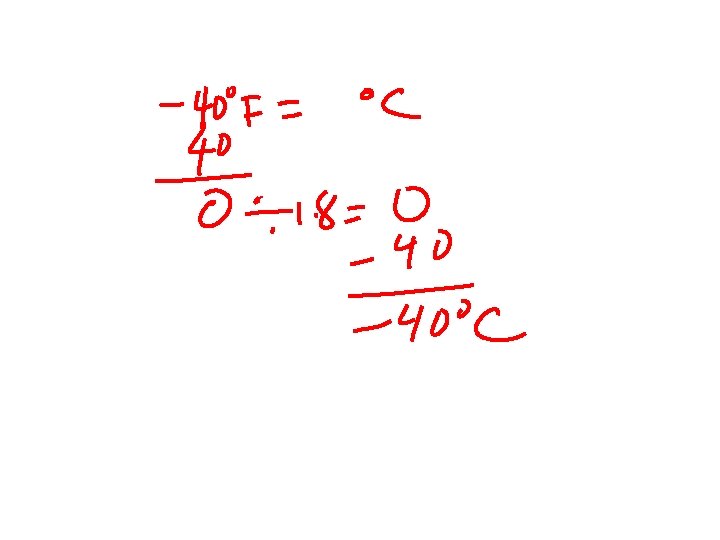 -40°F = °C
40
0 ÷ 1.8 = 0
- 40
-40°C